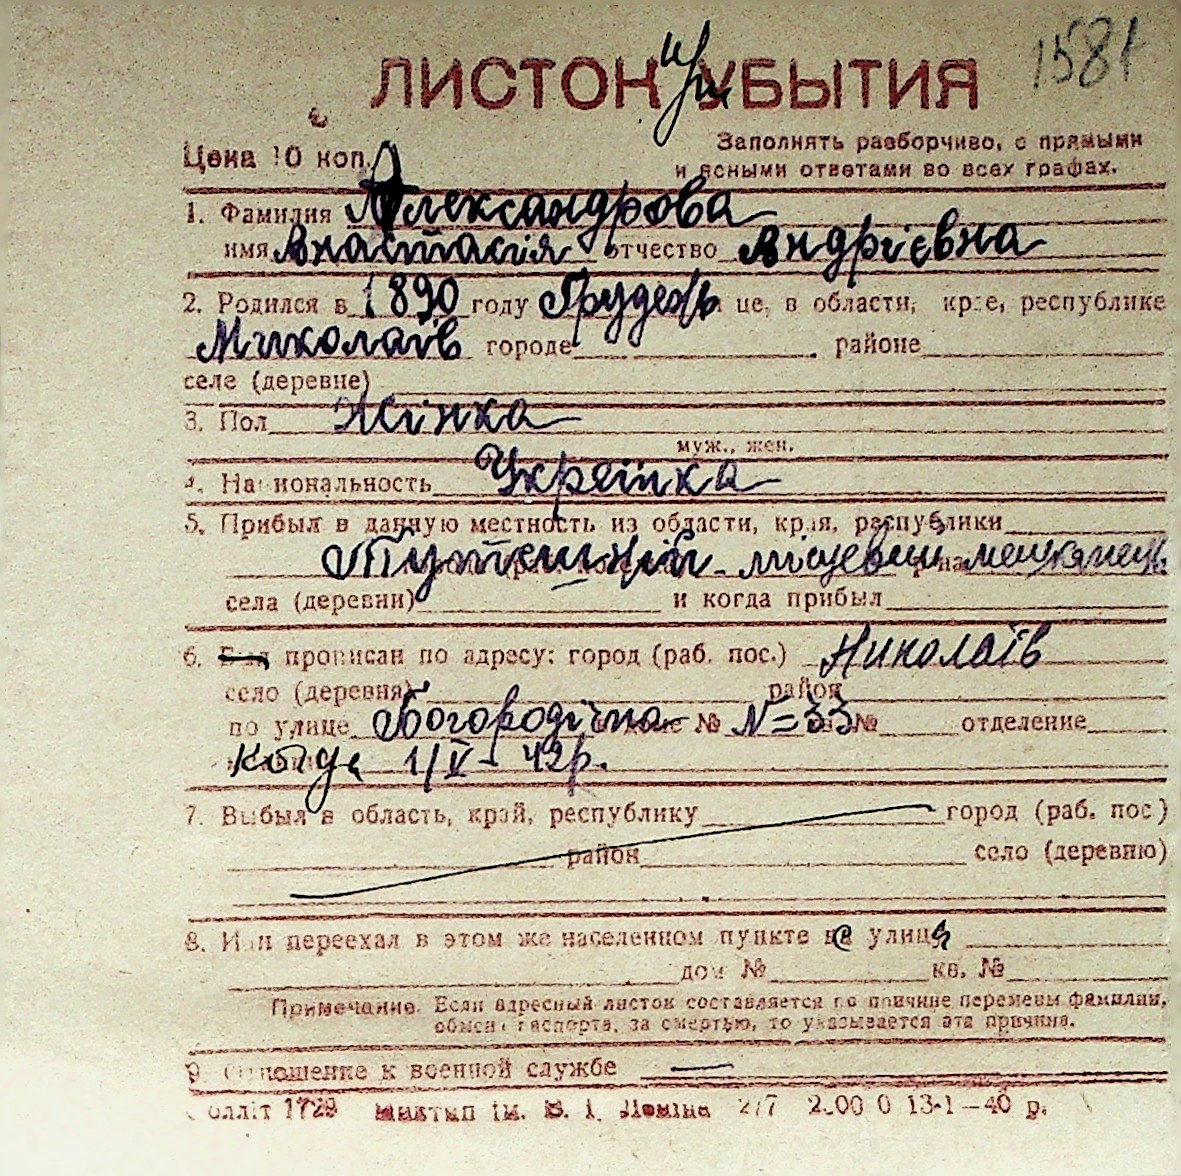 1581
ЛИСТОК при УБЫТИЯ
Цена 10 коп.
Заполнять разборчиво, с прямыми
и ясными ответами во всех графах.
1. Фамилия Александрова
имя Анастасія отчество Андрієвна
2. Родился в 1890 году Грудень це, в области, крае, республике
Миколаїв городе районе
селе (деревне)
3. Пол Жінка
муж., жен.
4. Национальность Українка
5. Прибыл в данную местность из области, края, республики
Тутешній - місцевий мешканець
села (деревни) и когда прибыл
6. Был прописан по адресу: город (раб. пос.) Николаїв
село (деревня) район
по улице Богородична № N=33 № отделение
когда 1/V - 42р.
7. Выбыл в область, край, республику город (раб. пос)
район село (деревню)
8. Или переехал в этом же населенном пункте с улицы
дом № кв. №
Примечание. Если адресный листок составляется по причине перемены фамилии,
обмена паспорта, за смертью, то указывается эта причина.
9 Отношение к военной службе —
1729 ім. В. І. Леніна 2/7 13-1—40 р.